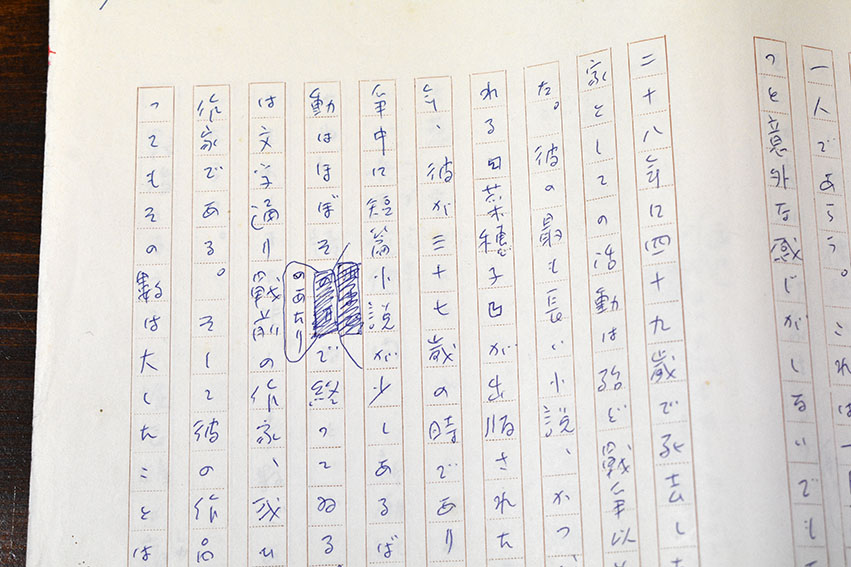 一人であらう。これは一
つと意外な感じがしないでも
二十八年に四十九歳で死去し
家としての活動は殆ど戦争以
た。彼の最も長い小説、かつ
れる「菜穂子」が出版された
年、彼が三十七歳の時であり
争中に短篇小説が少しあるば
動はほぼそのあたりで終つてゐる
は文字通り戦前の作家、或ひ
作家である。そして彼の作品
つてもその数は大したことは